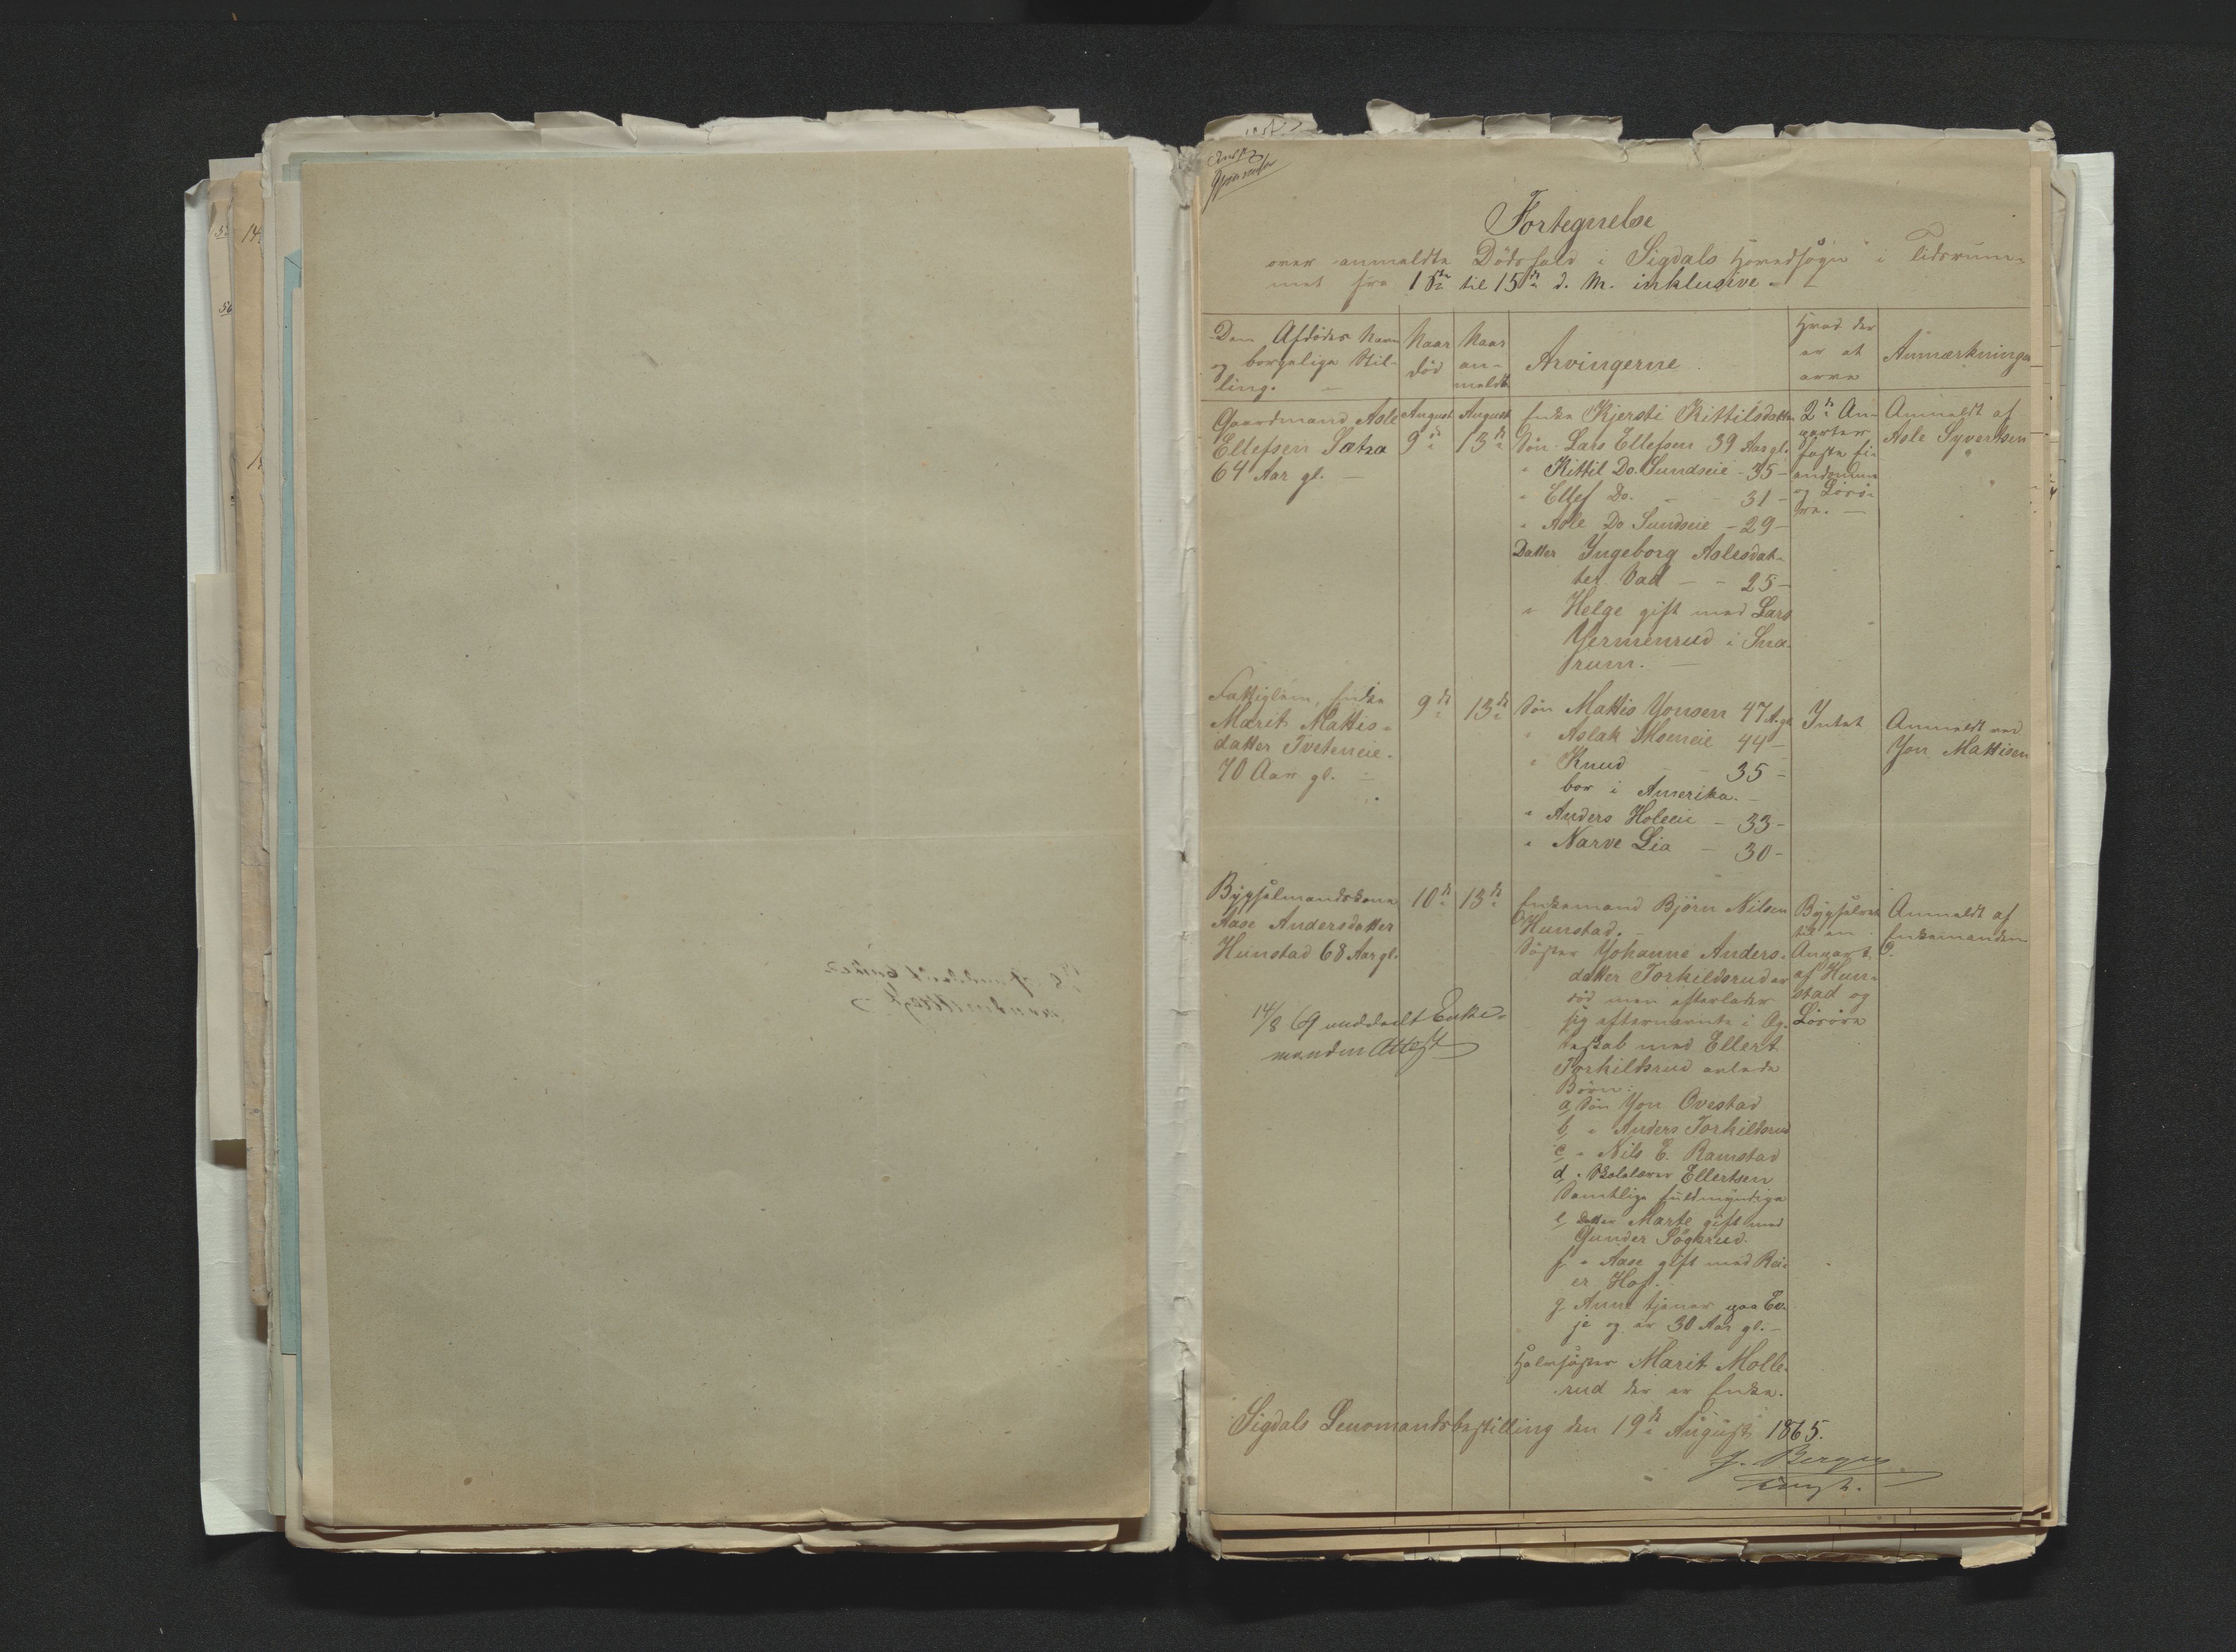 Fortegnelse
over anmeldte Dödsfald i Sigdals Hovedsogn i Tidsrum-
met fra 1ste til 15de d. M. inklusive.
Den Afdödes Navn
og borgelige Stil-
ling.
Naar
död
Naar
an-
meldt
Arvingerne
Hvad der
er at
arve
Anmærkninger
Gaardmand Asle
Ellefsen Sætra
64 Aar gl. —
August
9de
August
13de
Enke Kjersti Kittilsdatter
Sön Lars Ellefsen 39 Aar gl.
" Kittil Do. Sundseie - 35 -
" Ellef Do. - - 31 -
" Asle Do Sundseie - 29 -
Datter Ingeborg Aslesdat-
ter Vad - - 25 -
" Helge gift med Lars
Yermenrud i Sna-
rum. —
2de An-
parter
faste Ei-
endomme
og Lösö-
re. —
Anmeldt af
Asle Syvertsen
Fattiglem, Enke
Marit Mattis-
datter Tveteneie.
70 Aar gl. —
9de
13de
Sön Mattis Yonsen 47 A. gl.
" Aslak Moeneie 44 -
" Knud - - 35 -
bor i Amerika. -
" Anders Holeeie - 33 -
" Narve Lia - 30 -
Intet
Anmeldt ved
Yon Mattisen
Bygselmandskone
Aase Andersdatter
Hunstad 68 Aar gl.
10de
13de
Enkemand Björn Nilsen
Hunstad. -
Söster Yohanne Anders-
datter Torkildsrud er
död men efterlader
sig efternævnte i Æg-
teskab med Ellert
Torkildsrud avlede
Börn:
a, Sön Yon Ovestad
b, " Anders Torkildsrud
c, " Nils E. Ramstad
d, " Skolelærer Ellertsen
Samtlige fuldmyndige
e, Datter Marte gift med
Gunder Søgnrud.
f, " Aase gift med Rei-
er Hoff.
g, Anne tjener paa Ev-
je og er 30 Aar gl. -
Halvsöster Marit Molle-
rud der er Enke.
Bygselret
til en
Anpart
af Hun-
stad og
Lösöre
Anmeldt af
Enkemanden
14/8 69 meddeelt Enke-
manden Attest
Sigdals Lensmandsbestilling den 19de August 1865.
J. Bergen